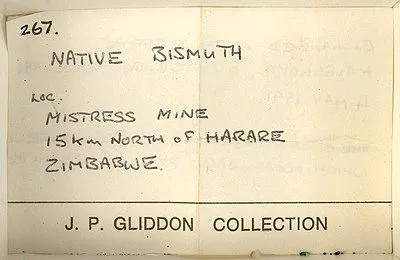 267.
NATIVE BISMUTH
LOC.
MISTRESS MINE
15km NORTH OF HARARE
ZIMBABWE.
J. P. GLIDDON COLLECTION